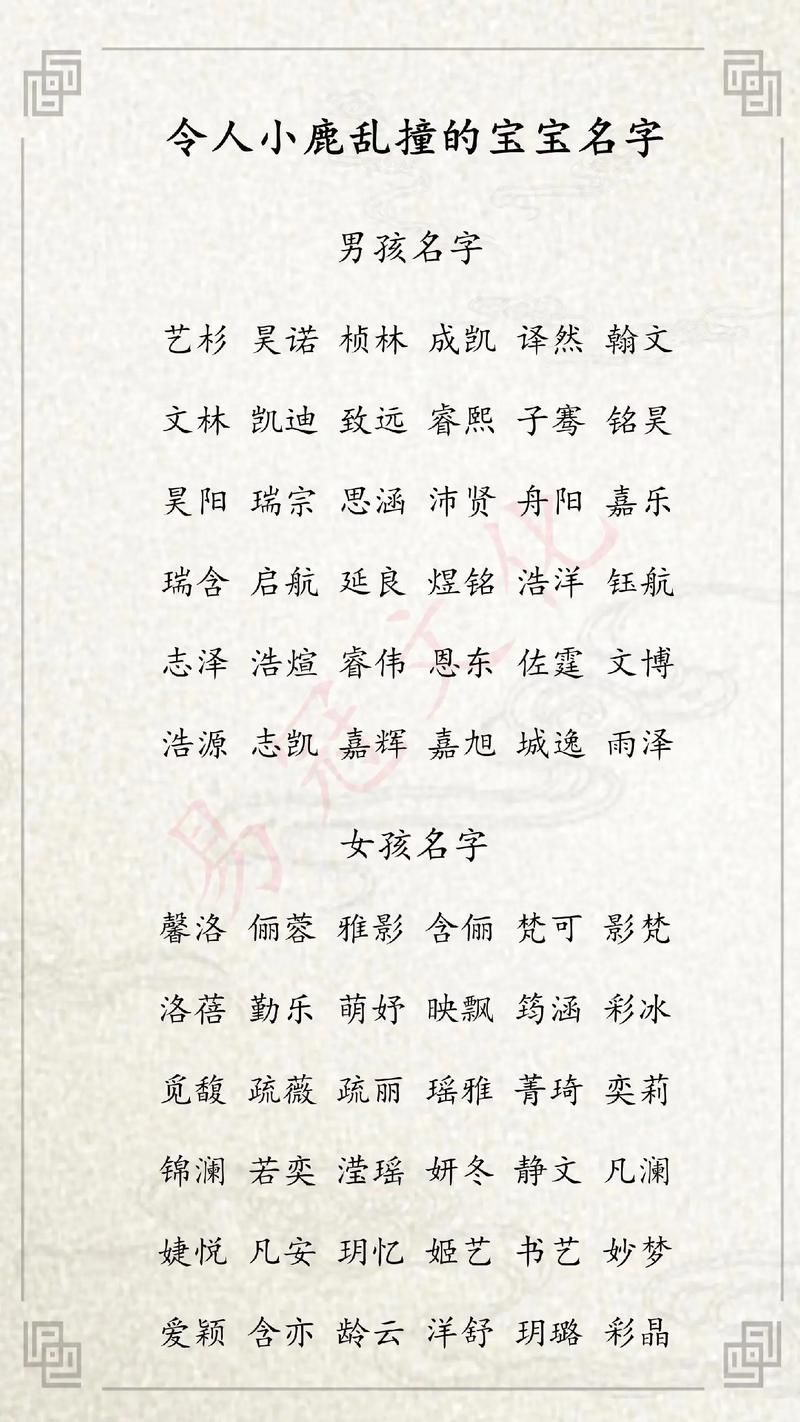 令人小鹿乱撞的宝宝名字
男孩名字
艺杉 昊诺 桢林 成凯 译然 翰文
文林 凯迪 致远 睿熙 子骞 铭昊
昊阳 瑞宗 思涵 沛贤 舟阳 嘉乐
瑞含 启航 延良 煜铭 浩洋 钰航
志泽 浩煊 睿伟 恩东 佐霆 文博
浩源 志凯 嘉辉 嘉旭 城逸 雨泽
易冠文化
女孩名字
馨洛 俪蓉 雅影 含俪 梵可 影梵
洛蓓 勤乐 萌妤 映飘 筠涵 彩冰
觅馥 疏薇 疏丽 瑶雅 菁琦 奕莉
锦澜 若奕 滢瑶 妍冬 静文 凡澜
婕悦 凡安 玥忆 姬艺 书艺 妙梦
爱颖 含亦 龄云 洋舒 玥璐 彩晶